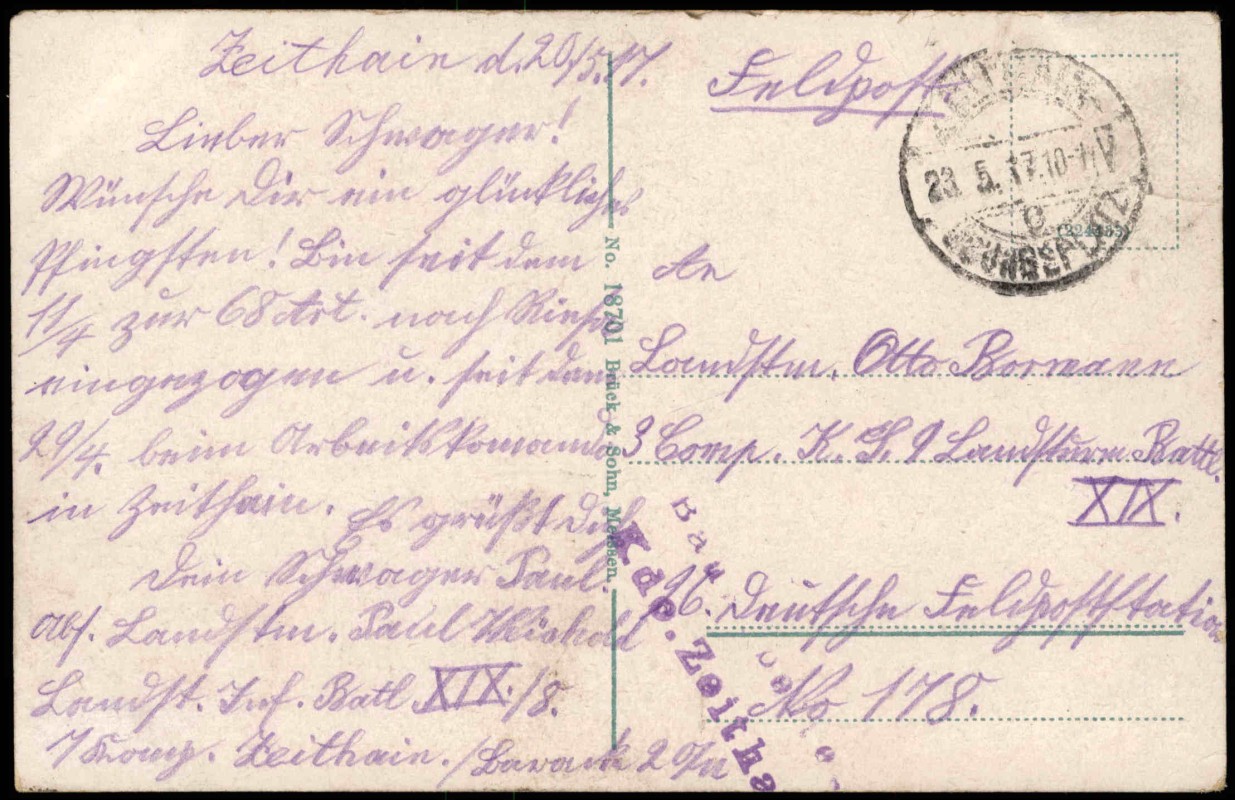 Zeithain d. 20/5.17.
Lieber Schwager!
Wünsche Dir ein glückliches
Pfingsten! Bin seit dem
11/4 zur 68 Art. nach Riesa
eingezogen u. seit dem
29/4. beim Arbeitskomando
in Zeithain. Es grüßt Dich
Dein Schwager Paul.
Abs. Landstm. Paul
Landst. Inf. Batl. XIX./8.
7 Komp. Zeithain. /Barack 2
No. 18701 Brück & Sohn, Meissen.
Feldpost
ZEITHAIN
23. 5. 17. 10-11 V
e
ÜBUNGSPLATZ
An
Landstm. Otto Bormann
3 Comp. K. S. 9 Landsturm Battl.
XIX.
16. Deutsche Feldpoststation
No 178.
Kdo. Zeitha